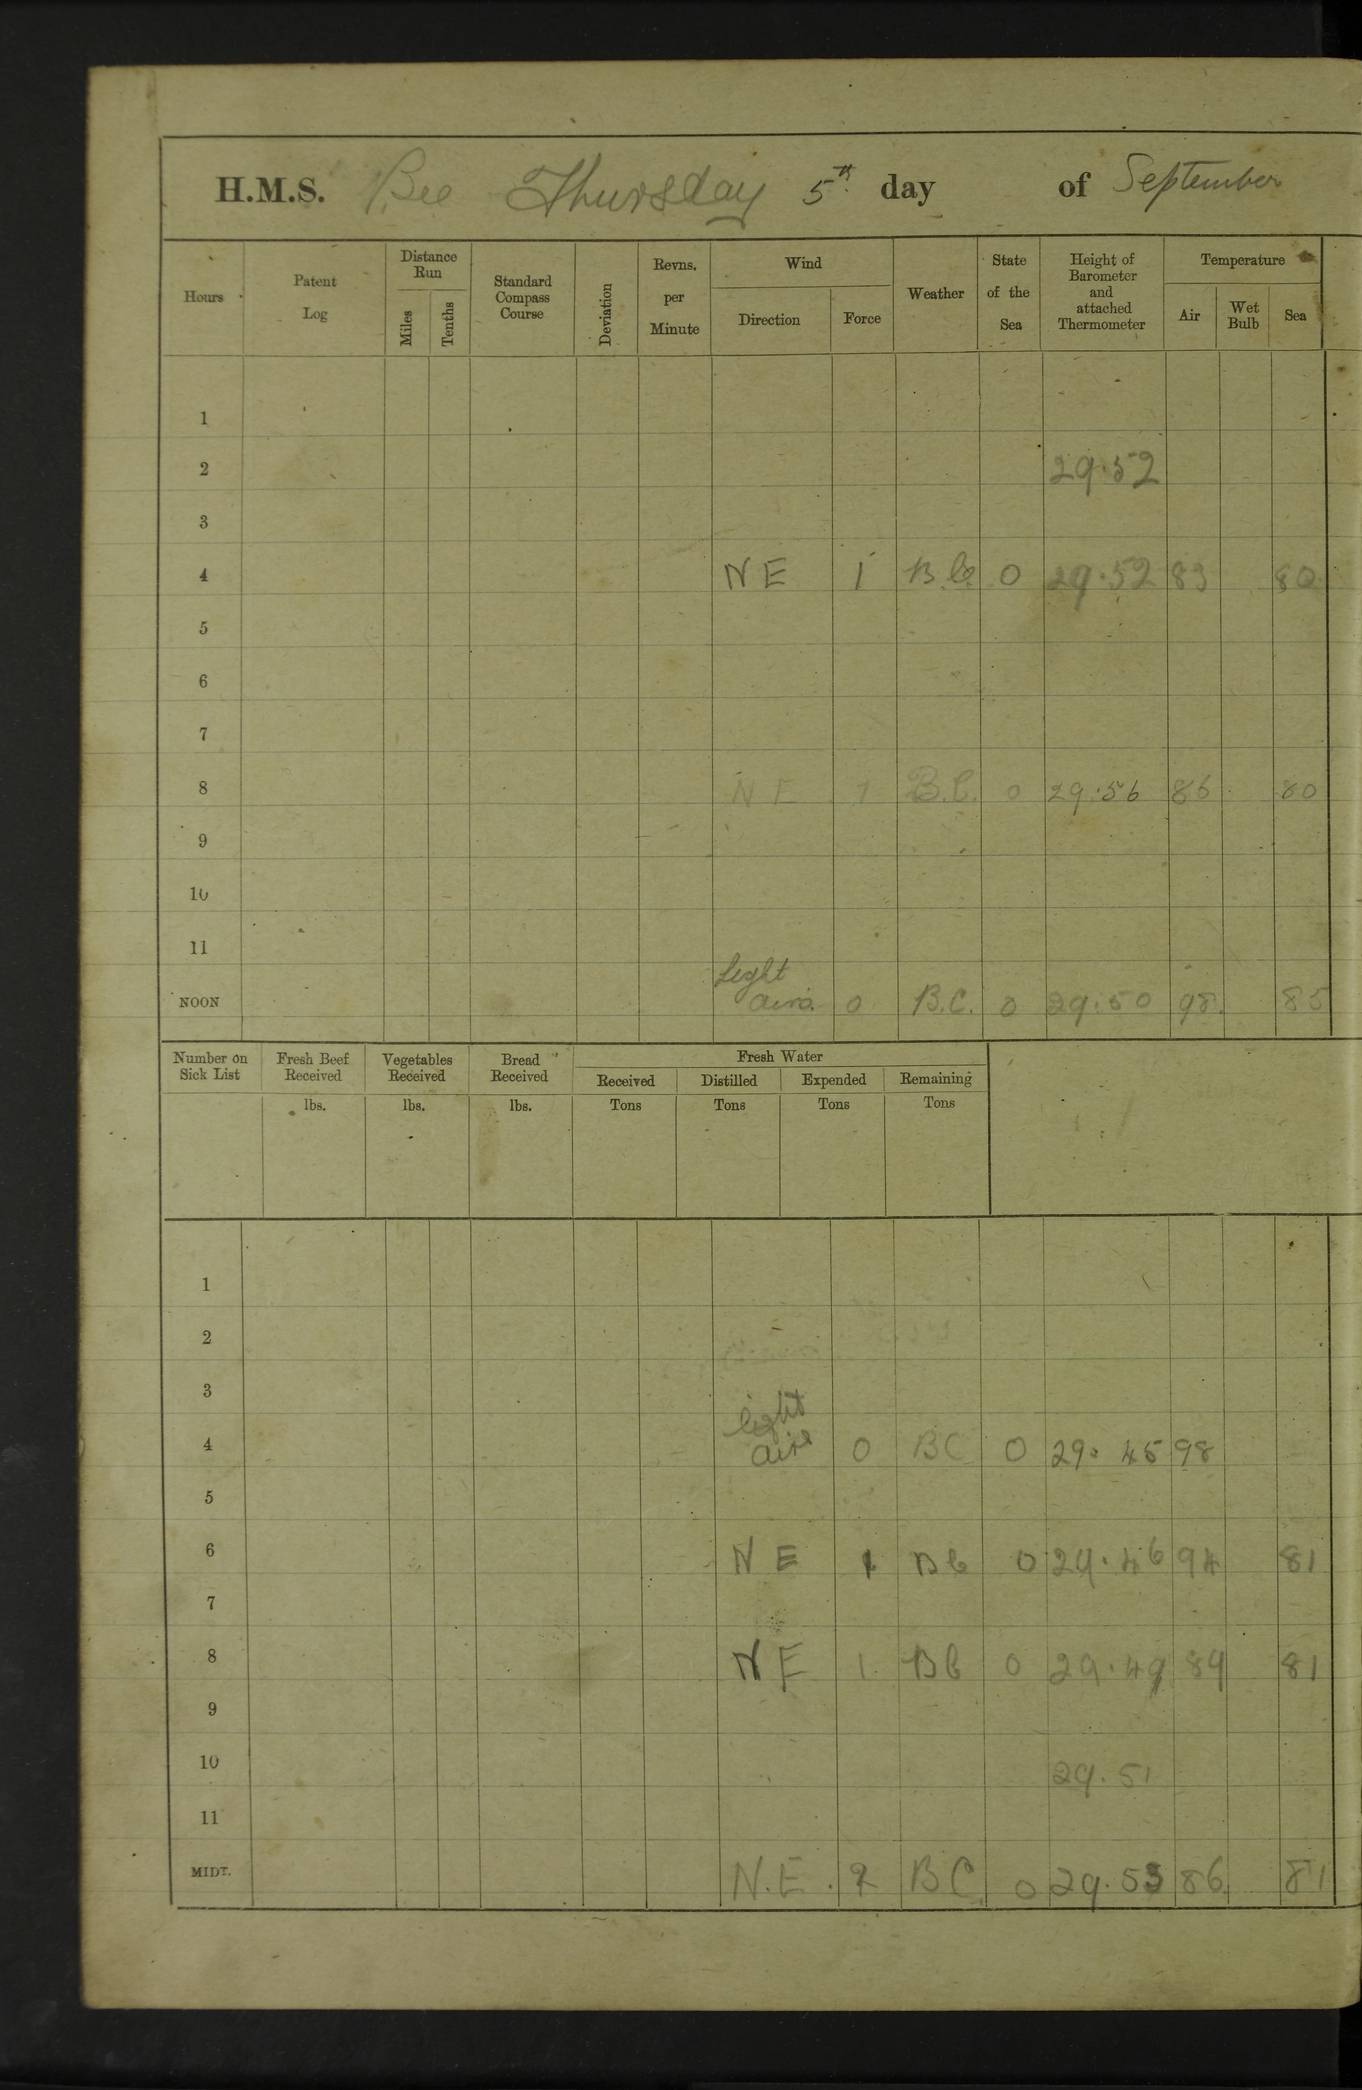 H.M.S. Bee Thursday 5th day of September
Hours Patent Log Distance Run Miles Tenths Standard Compass Course Deviation Revns. per Minute Wind Direction Force Weather State of the Sea Height of Barometer and attached Thermometer Temperature Air Wet Bulb Sea
1
2 29.52
3
4 NE 1 B.C. 0 29.52 83 80
5
6
7
8 NE 1 B.C. 0 29.56 86 80
9
10
11
NOON Light airs 0 B.C. 0 29.50 98 85
Number on Sick List Fresh Beef Received Vegetables Received Bread Received Fresh Water
Received Distilled Expended Remaining
lbs. lbs. lbs. Tons Tons Tons Tons
1
2
3
4 light airs 0 BC 0 29.45 98
5
6 NE 1 BC 0 29.46 94 81
7
8 NE 1 BC 0 29.49 89 81
9
10 29.51
11
MIDT. N.E. 2 BC 0 29.53 86 81